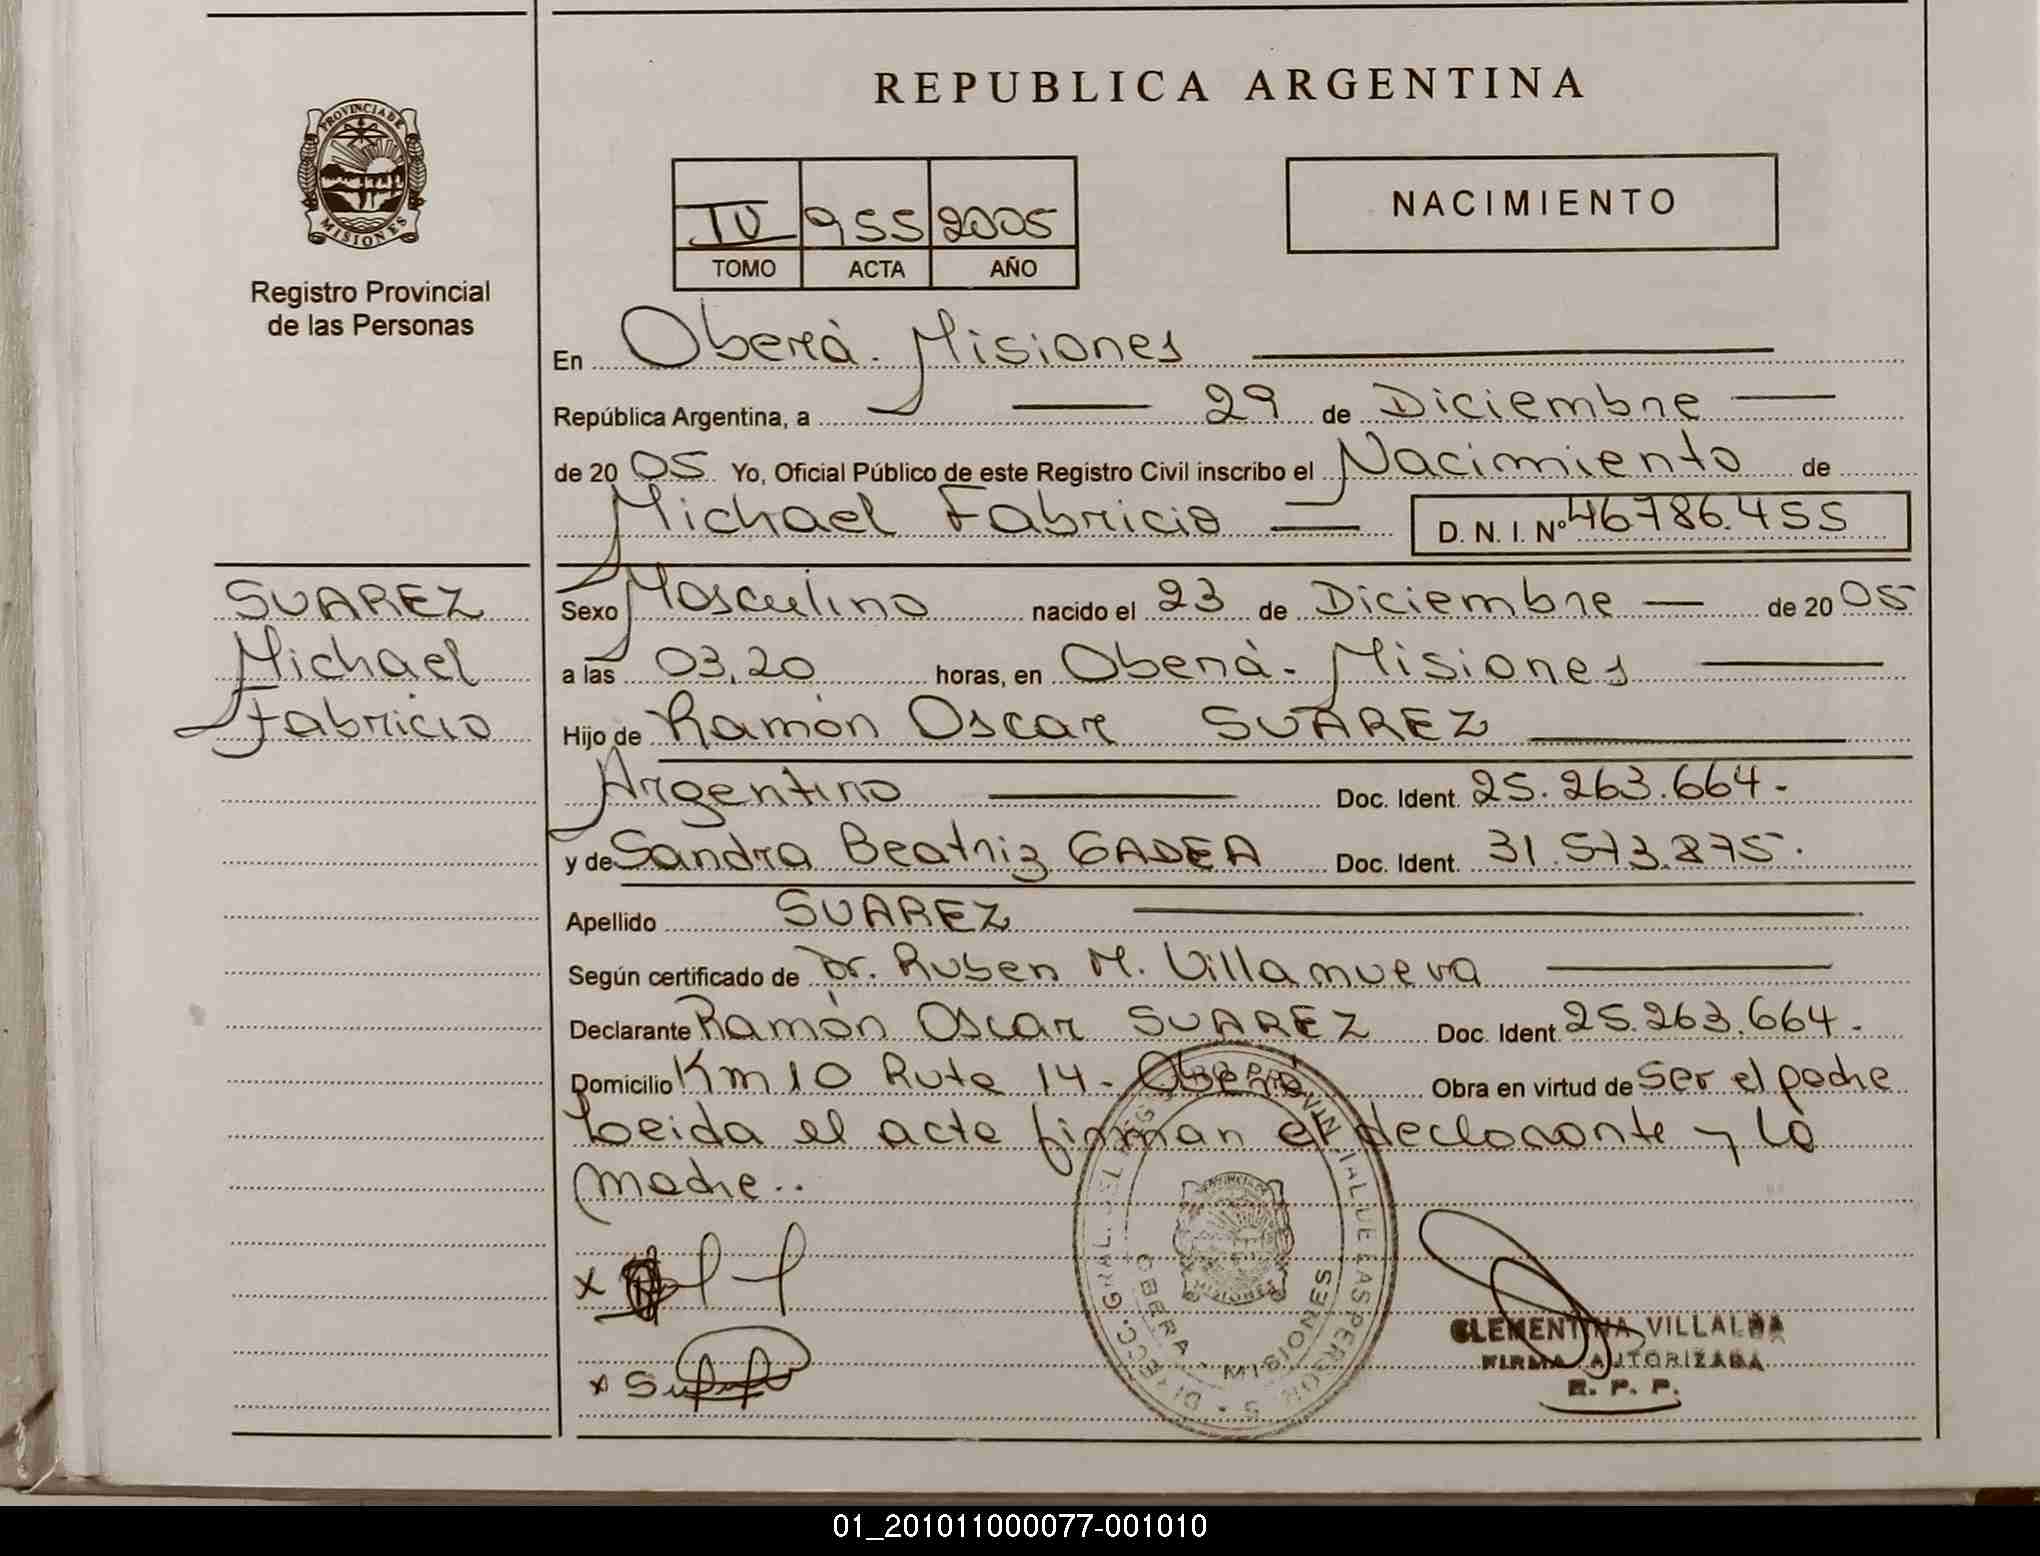 REPUBLICA ARGENTINA
PROVINCIA DE
MISIONES
Registro Provincial
de las Personas
IV 955 2005
TOMO ACTA AÑO
NACIMIENTO
En Oberá. Misiones
República Argentina, a 29 de Diciembre
de 2005 Yo, Oficial Público de este Registro Civil inscribo el Nacimiento de
Michael Fabricio D. N. I. Nº 46786.455
SUAREZ
Michael
Fabricio
Sexo Masculino nacido el 23 de Diciembre de 2005
a las 03,20 horas, en Oberá - Misiones
Hijo de Ramón Oscar SUAREZ
Argentino Doc. Ident. 25.263.664.-
y de Sandra Beatriz GADEA Doc. Ident. 31.573.875.
Apellido SUAREZ
Según certificado de Dr. Ruben M. Villanueva
Declarante Ramón Oscar SUAREZ Doc. Ident. 25.263.664.-
Domicilio Km 10 Ruta 14 - Oberá Obra en virtud de ser el padre
Leida el acta firman el declarante y la
madre..
DIRECC. GRAL. DEL REGISTRO PROVINCIAL DE LAS PERSONAS
PROVINCIA DE
MISIONES
OBERA - MISIONES
x
x
CLEMENTINA VILLALBA
FIRMA AUTORIZADA
R. P. P.
01_201011000077-001010